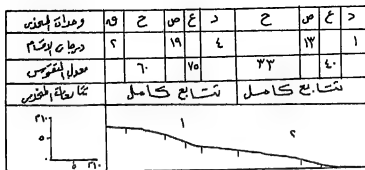 وحدات المنحدر ق ح ص ع د ح ص ع د
درجات الانحدار ٢ ١٩ ٤ ١٣ ١
معدل التقوس ٦٠ ٧٥ ٣٣ ٤٠
تتابعات المنحدر تتابع كامل تتابع كامل
١
٢
٣٦٠
٥٠
٥ ٣٦٠